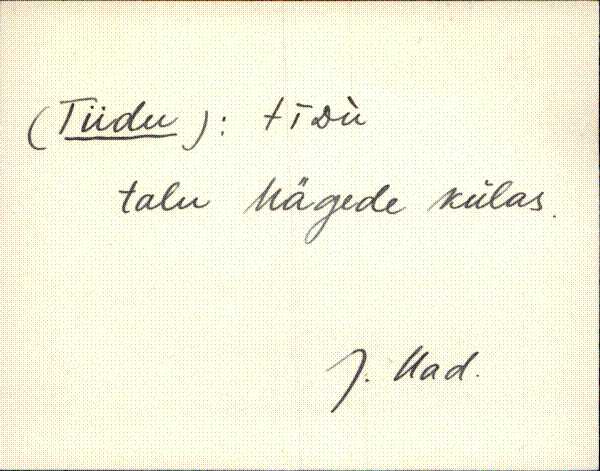 (Tiidu): tīDù
talu Mägede külas.
J. Mad.